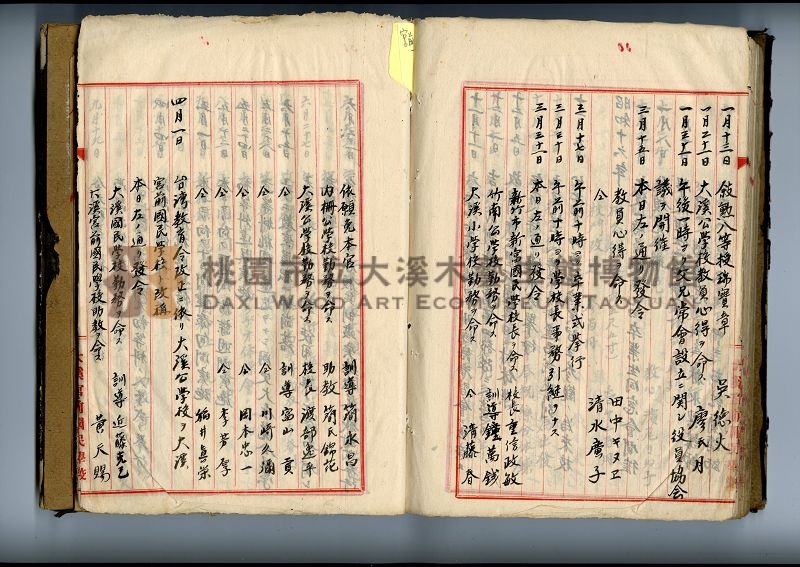 一月十三日 敍勲八等授瑞寶章 吳德火
一月二十一日 大溪公學校教員心得ヲ命ス 廖氏月
一月三十一日 午後一時ヨリ父兄常會設立ニ関シ役員協会
議ヲ開催
三月十五日 本日左ノ通リ發令
教員心得ヲ命ス 田中キヌエ
仝 清水廣子
三月十七日 午前十時ヨリ卒業式挙行
三月三十日 午前十時ヨリ學校長事務引継ヲナス
三月三十一日 本日左ノ通リ發令
新竹市新富國民學校長ヲ命ス 校長 重信政敏
竹南公學校勤務ヲ命ス 訓導 鍾萬錢
大溪小學校勤務ヲ命ス 仝 清藤春
依願免本官 訓導 簡永昌
内柵公學校勤務ヲ命ス 助教 簡氏錦花
大溪公學校勤務ヲ命ス 校長 渡部
仝 訓導 富山貢
仝 仝 川崎久彌
仝 仝 岡本忠一
仝 仝 李芳厚
仝 仝 稻井真栄
四月一日 台湾教育令改正ニ依リ大溪公學校ヲ大溪
宮前國民學校ト改稱
本日左ノ通リ發令
大溪國民學校勤務ヲ命ス 訓導 近藤克己
大溪宮前國民學校助教ヲ命ス 黄天賜
大溪宮前國民學校
桃園市立大溪木藝生態博物館
DAXI WOOD ART ECOMUSEUM, TAOYUAN